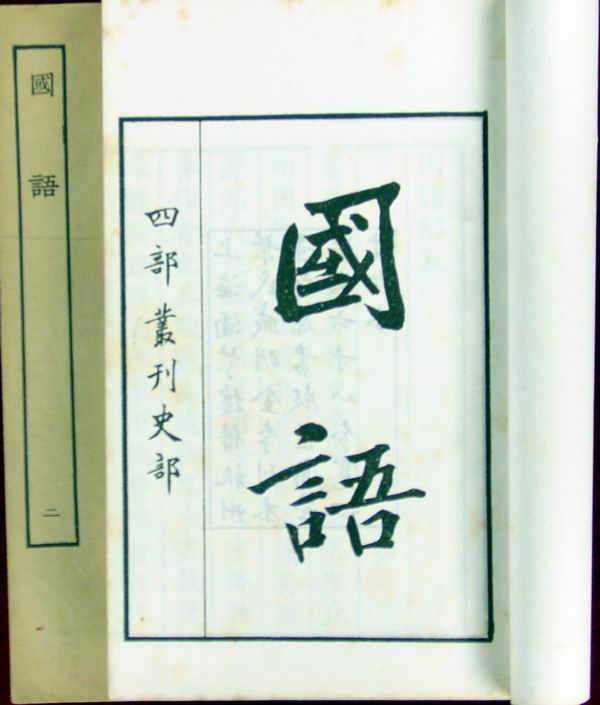 國語
四部叢刊史部
國語 二